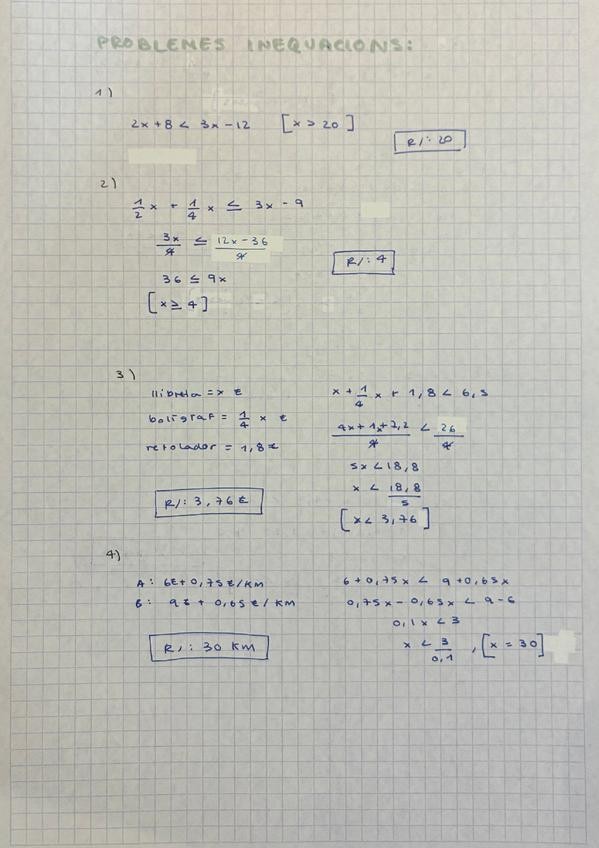 PROBLEMES INEQUACIONS:
1)
2x + 8 < 3x - 12 [x > 20]
R/: 20
2)
1/2 x + 1/4 x ≤ 3x - 9
3x/4 ≤ 12x - 36/4
R/: 4
36 ≤ 9x
[x ≥ 4]
3)
llibreta = x €
x + 1/4 x + 1,8 < 6,5
bolígraf = 1/4 x €
4x + 1x + 7,2/4 < 26/4
retolador = 1,8 €
5x < 18,8
x < 18,8/5
R/: 3,76 €
[x < 3,76]
4)
A: 6€ + 0,75 €/KM
6 + 0,75x < 9 + 0,65x
B: 9€ + 0,65 €/KM
0,75x - 0,65x < 9 - 6
0,1x < 3
R/: 30 KM
x < 3/0,1 , [x = 30]